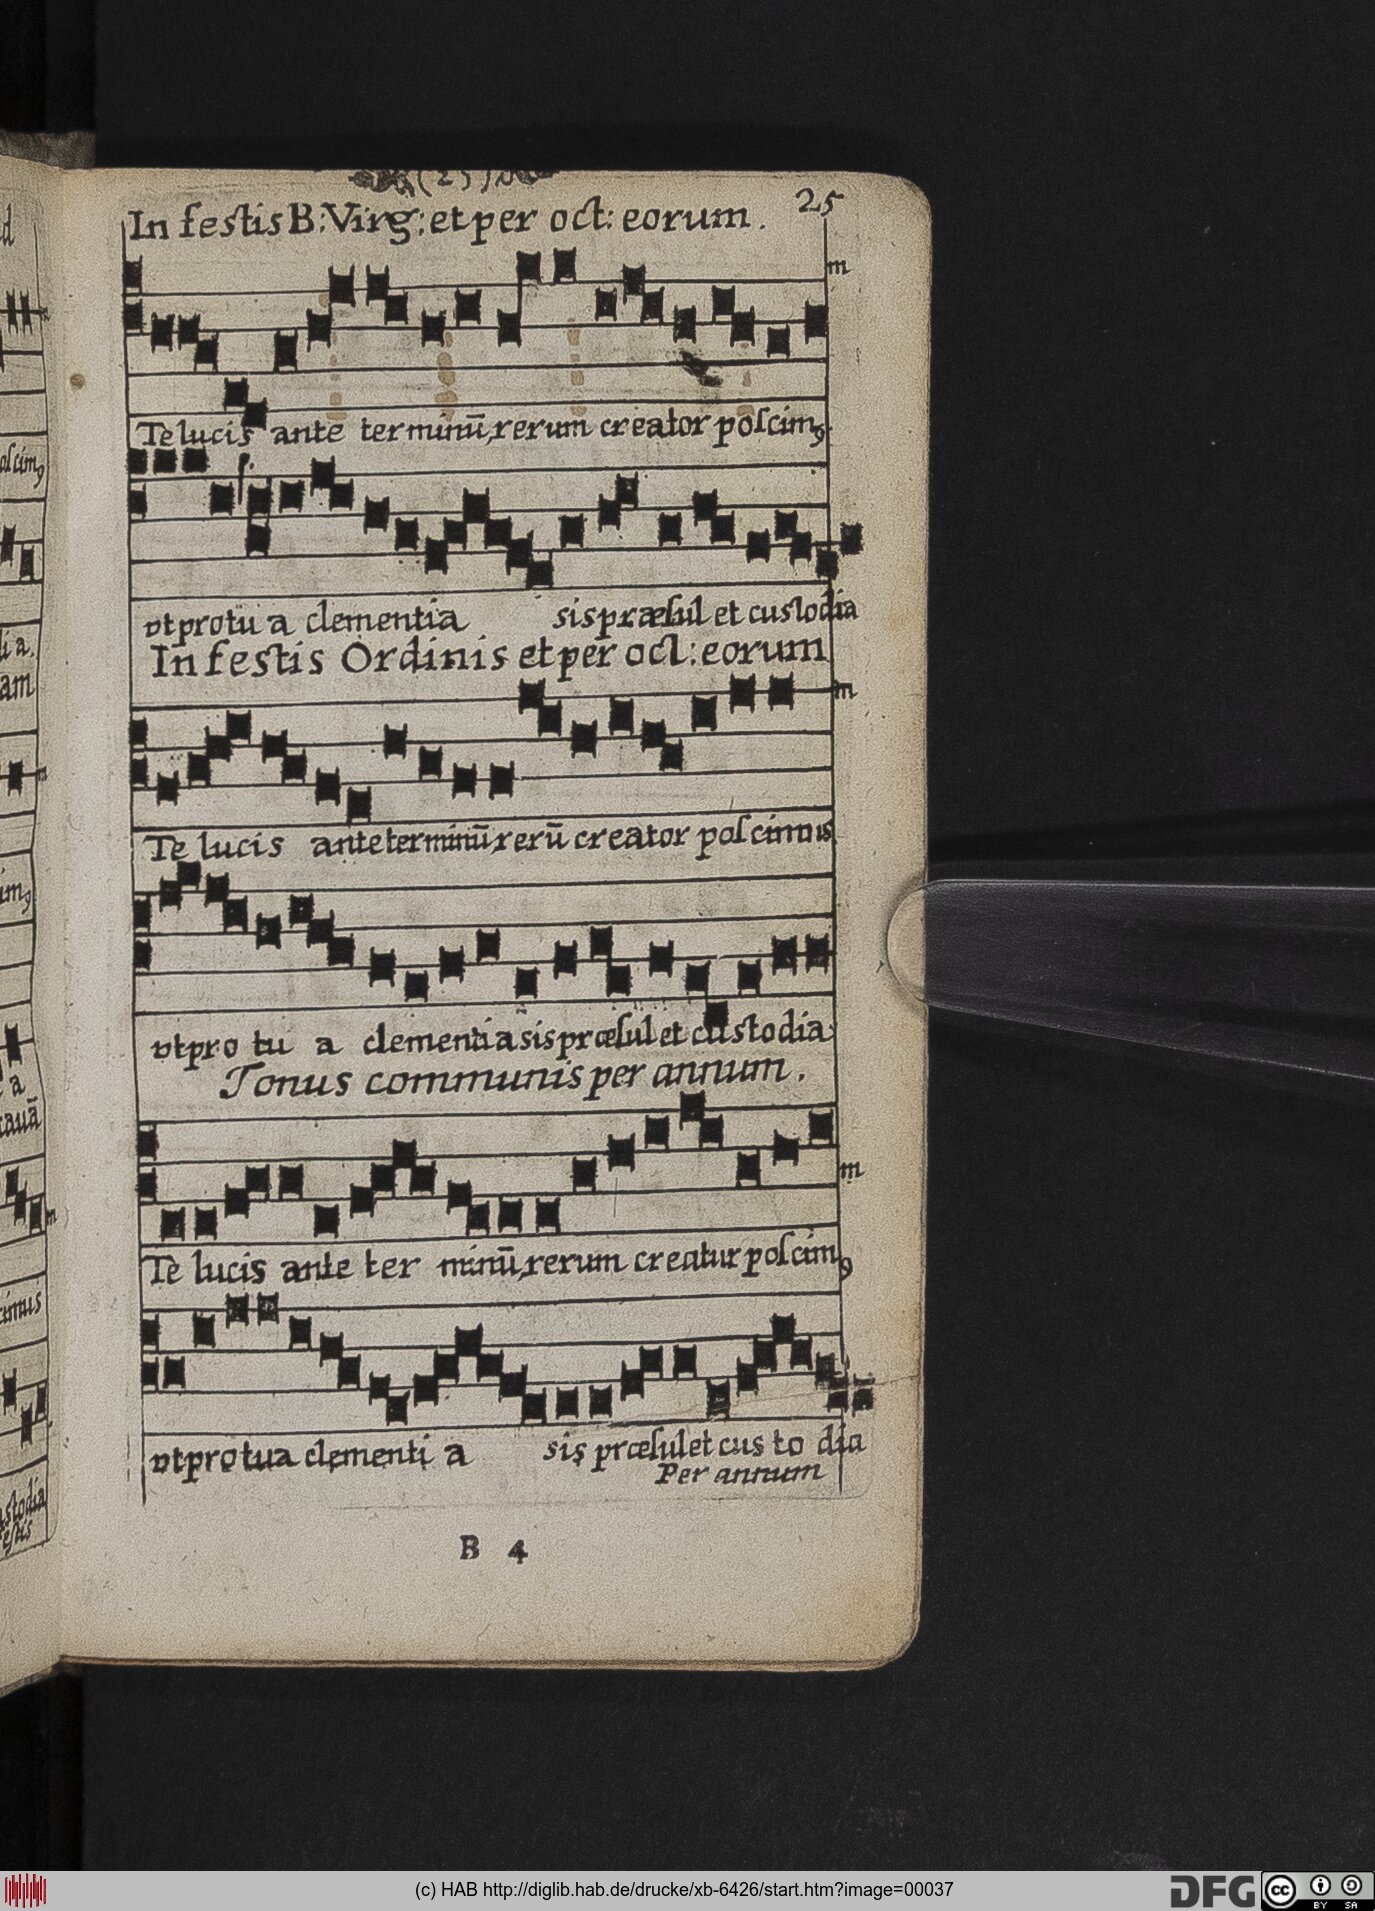 (25)
25
In festis B: Virg: et per oct: eorum.
Te lucis ante terminū, rerum creator poscimꝰ
vt pro tu a clementia sis præsul et custodia
In festis Ordinis et per oct: eorum
Te lucis ante terminū, rerū creator poscimus
vt pro tu a clementia sis præsul et custodia.
Tonus communis per annum.
Te lucis ante ter minū, rerum creatur poscimꝰ
vt pro tua clementi a sis præsul et cus to dia
Per annum
B 4
(c) HAB http://diglib.hab.de/drucke/xb-6426/start.htm?image=00037
DFG
cc BY SA